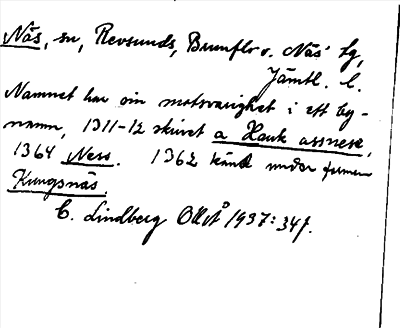 Näs, sn, Revsunds, Brunflo o. Näs' tg,
Jämtl. l.
Namnet har sin motsvarighet i ett by-
namn, 1311-12 skrivet a Hauk assnese,
1364 Ness. 1362 känt under formen
Kungsnäs.
C. Lindberg OUÅ 1937: 34 f.